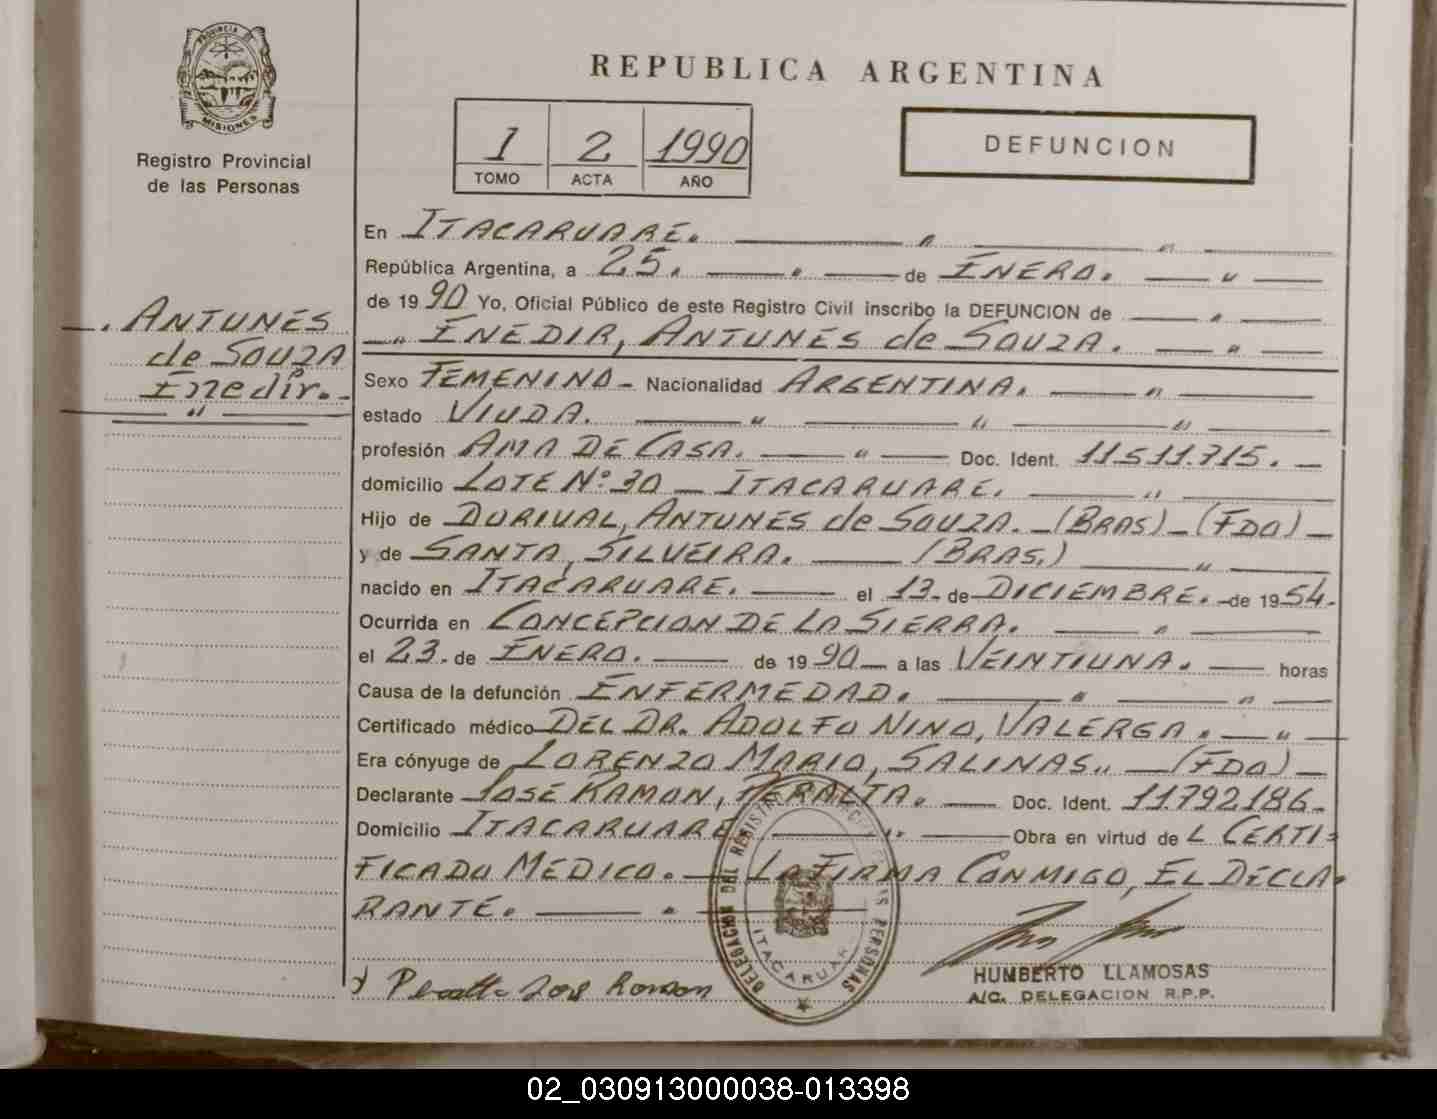 PROVINCIA DE
MISIONES
Registro Provincial
de las Personas
REPUBLICA ARGENTINA
1 2 1990
TOMO ACTA AÑO
DEFUNCION
ANTUNES
de SOUZA
Enedir.-
En ITACARUARE.
República Argentina, a 25. de ENERO.
de 1990 Yo, Oficial Público de este Registro Civil inscribo la DEFUNCION de
ENEDIR, ANTUNES de SOUZA.
Sexo FEMENINO - Nacionalidad ARGENTINA.
estado VIUDA.
profesión AMA DE CASA. Doc. Ident. 11.511.715. -
domicilio LOTE Nº 30 - ITACARUARE.
Hijo de DURIVAL, ANTUNES de SOUZA. - (BRAS) - (FDO) -
y de SANTA, SILVEIRA. (BRAS.)
nacido en ITACARUARE. el 13. de DICIEMBRE. de 1954.
Ocurrida en CONCEPCION DE LA SIERRA.
el 23. de ENERO. de 1990 a las VEINTIUNA. horas
Causa de la defunción ENFERMEDAD.
Certificado médico DEL DR. ADOLFO NINO, VALERGA.
Era cónyuge de LORENZO MARIO, SALINAS.. - (FDO) -
Declarante JOSE RAMON, PERALTA. Doc. Ident. 11.792.186.
Domicilio ITACARUARE Obra en virtud de L CERTI-
FICADO MEDICO. - LA FIRMA CONMIGO, EL DECLA-
RANTE.
DELEGACION DEL REGISTRO PROVINCIAL DE LAS PERSONAS
ITACARUARE
Peralta Jose Ramon
HUMBERTO LLAMOSAS
A/C. DELEGACION R.P.P.
02_030913000038-013398